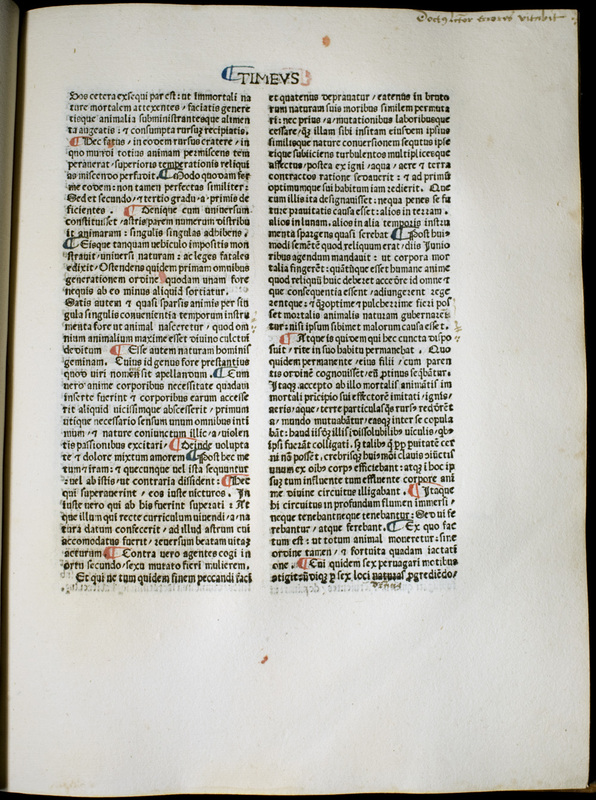 Doctus lector errores vitabit
TIMEVS
Vos cetera exsequi par est: ut immortali na
ture mortalem attexentes / faciatis genere
tisque animalia subministrantesque alimen
ta augeatis: ⁊ consumpta rursus recipiatis.
¶ Hec fatus / in eodem rursus cratere / in
quo mundi totius animam permiscens tem
perauerat / superioris temperationis reliqui
as miscendo perfudit. ¶ Modo quodam fer
me eodem: non tamen perfectas similiter:
Sed et secundo / ⁊ tertio gradu / a primis de
ficientes. ¶ Denique cum uniuersum
constituisset / astris parem numerum distribu
it animarum: singulis singulas adhibens.
¶ Eisque tanquam uehiculo impositis mon
strauit / uniuersi naturam: ac leges fatales
edixit / Ostendens quidem primam omnibus
generationem ordine quodam unam fore
nequis ab eo minus aliquid sortiatur.
Satis autem ⁊ quasi sparsis animis per sin
gula singulis conuenientia temporum instru
menta fore ut animal nasceretur / quod om
nium animalium maxime esset diuino cultui
deditum ¶ Esse autem naturam hominis
geminam. Cuius id genus fore prestantius
quod uiri nomen sit apellandum. ¶ Cum
uero anime corporibus necessitate quadam
inserte fuerint ⁊ corporibus earum accesse
rit aliquid uicissimque abscesserit / primum
utique necessario sensum unum omnibus inti
mum / ⁊ nature coniunctum illic / a uiolen
tis passionibus excitari / ¶ Deinde uolupta
te ⁊ dolore mixtum amorem ¶ Post hec me
tum / iram: ⁊ quecunque uel ista sequuntur
: uel ab istis / ut contraria dissident: ¶ Hec
qui superauerint / eos iuste uicturos. In
iuste uero qui ab his fuerint superati: At
que illum qui recte curriculum uiuendi / a / na
tura datum confecerit / ad illud astrum cui
accomodatus fuerit / reuersum beatam uitam
acturum ¶ Contra uero agentes cogi in
ortu secundo / sexu mutato fieri mulierem.
Et qui ne tum quidem finem peccandi faci
et quatenus deprauatur / eatenus in bruto
rum naturam suis moribus similem permuta
ri: nec prius / a / mutationibus laboribusque
cessare / qꝫ illam sibi insitam eiusdem ipsius
similisque nature conuersionem sequtus ipse
eique subiiciens turbulentos multiplicesque
affectus / postea ex igni / aqua / aere ⁊ terra
contractos ratione sedauerit: ⁊ ad primum
optimumque sui habitum iam redierit. Que
cum illis ita designauisset: nequa penes se fu
ture prauitatis causa esset: alios in terram.
alios in lunam. alios in alia temporis instru
menta spargens quasi serebat ¶ Post huius
modi sementē quod reliquum erat / diis Junio
ribus agendum mandauit: ut corpora mor
talia fingerēt: quātūque esset humane anime
quod reliquū huic deberet accedere id omne ⁊
que consequentia essent / adiungerent rege
rentque: ⁊ qꝫoptime ⁊ pulcherrime fieri pos
set mortalis animalis naturam gubernaretis
tur: nisi ipsum sibimet malorum causa esset.
¶ Atque is quidem qui hec cuncta dispo
suit / rite in suo habitu permanebat. Quo
quidem permanente / eius filii / cum paren
tis ordinē cognouisset / eū ptinus seqbātur.
Itaqꝫ accepto ab illo mortalis animātis im
mortali pricipio sui effectorē imitati / ignis /
aeris / aque / terre particulasqꝫ rursꝰ reddēdas
a / mundo mutuabātur / easqꝫ inter se copula
bāt: haud iisdē illis idissolubilibꝰ uiculis / qbꝰ
ipsi fuerāt colligati. sꝫ talibꝰ q̄ ꝓp puitatē cer
ni nō posset. crebrisqꝫ huiꝰmōi clauis iūctis
unum ex oībꝰ corpꝰ efficiebant: atqꝫ ī hoc ip
sum tum influente tum effluente corpore ani
me diuine circuitus illigabant. ¶ Itaque
hi circuitus in profundum flumen immersi.
neque tenebant neque tenebantur: Sed ui fe
rebantur / atque ferebant. ¶ Ex quo fac
tum est: ut totum animal moueretur: sine
ordine tamen / ⁊ fortuita quadam iactati
one. ¶ Cui quidem sex peruagari motibus